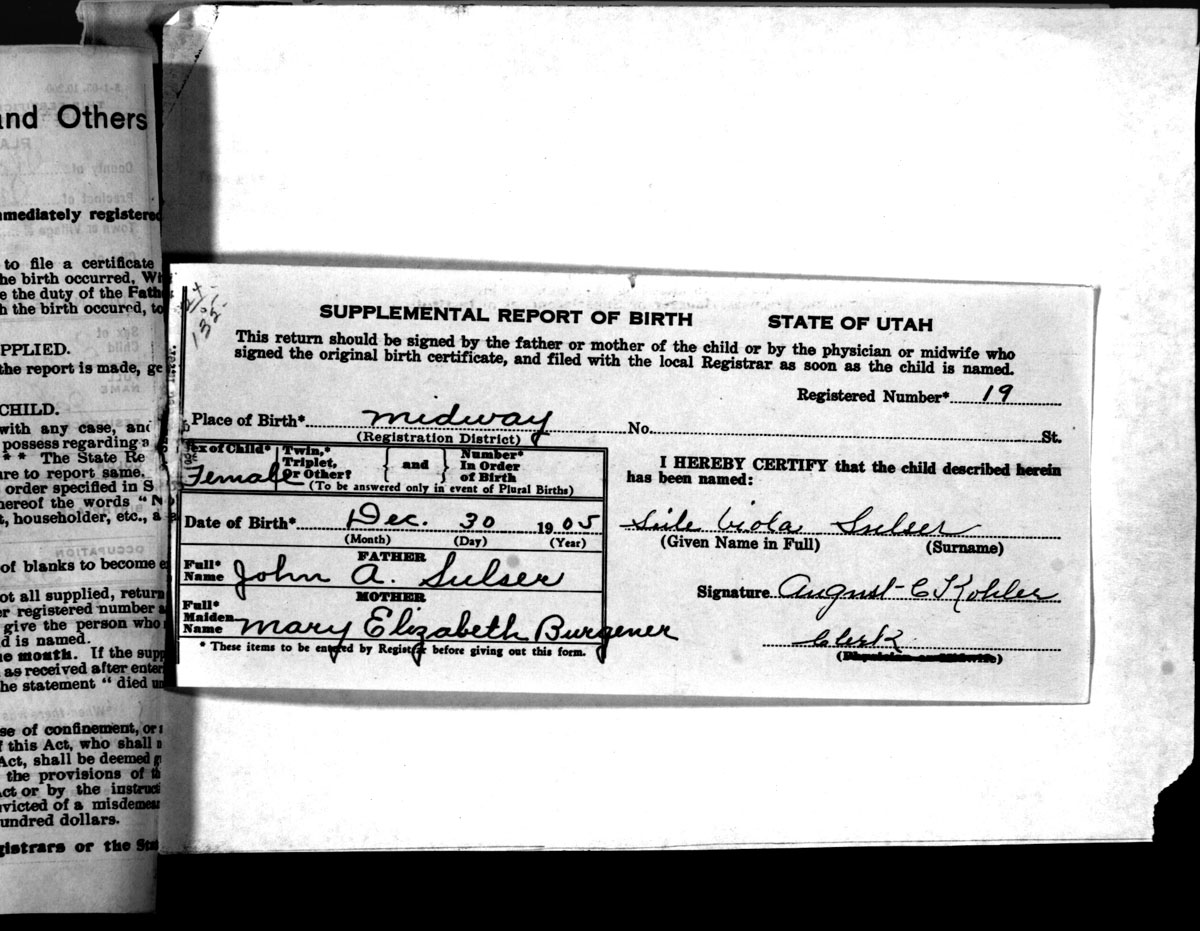 and Others
mmediately registered
to file a certificate
he birth occurred,
e the duty of the
h the birth occured, to
PPLIED.
the report is made,
CHILD.
with any case, and
possess regarding
* * The State Re
are to report same.
order specified in S
hereof the words "
t, householder, etc., a
of blanks to become
ot all supplied, return
er registered number
give the person who
d is named.
he month. If the supp
as received after enter
he statement " died
se of confinement, or
f this Act, who shall
Act, shall be deemed
the provisions of
Act or by the
nvicted of a misdemea
undred dollars.
gistrars or the Sta
SUPPLEMENTAL REPORT OF BIRTH STATE OF UTAH
This return should be signed by the father or mother of the child or by the physician or midwife who
signed the original birth certificate, and filed with the local Registrar as soon as the child is named.
Registered Number* 19
Place of Birth* Midway No. St.
(Registration District)
Sex of Child* Female
Twin,* Triplet, Or Other? { and } Number* In Order of Birth
(To be answered only in event of Plural Births)
Date of Birth* Dec. 30 1905
(Month) (Day) (Year)
FATHER
Full* Name John A. Sulser
MOTHER
Full* Maiden Name Mary Elizabeth Burgener
* These items to be entered by Registrar before giving out this form.
I HEREBY CERTIFY that the child described herein
has been named:
Viola Sulser
(Given Name in Full) (Surname)
Signature August C Kohler
Clerk
(Physician or Midwife)